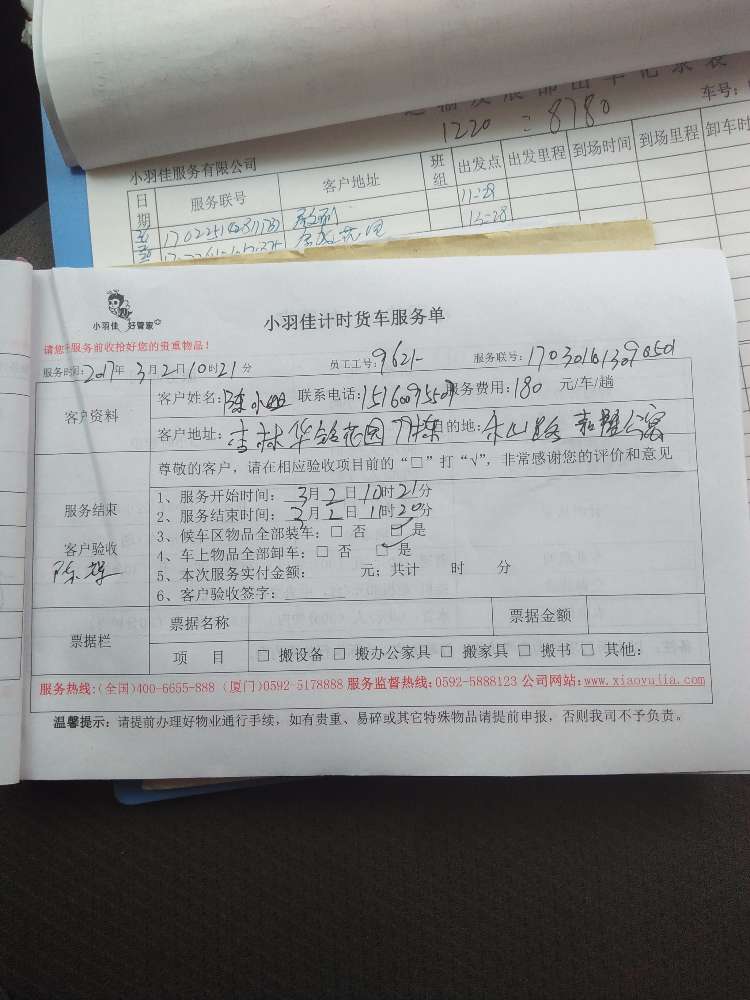 1220 = 8780
车号:
小羽佳服务有限公司
日期 服务联号 客户地址 班组 出发点 出发里程 到场时间 到场里程 卸车时
小羽佳 好管家
小羽佳计时货车服务单
请您在服务前收拾好您的贵重物品!
服务时间: 2017年 3月2日10时21分 员工工号: 9621 服务联号:
客户资料
客户姓名: 陈小姐 联系电话: 服务费用: 180 元/车/趟
客户地址: 杏林华铃花园7栋 目的地: 公寓
尊敬的客户,请在相应验收项目前的“□”打“√”,非常感谢您的评价和意见
服务结束
客户验收
1、服务开始时间: 3月2日10时21分
2、服务结束时间: 3月2日11时20分
3、候车区物品全部装车: □ 否 □ 是
4、车上物品全部卸车: □ 否 □ 是
5、本次服务实付金额: 元;共计 时 分
6、客户验收签字:
票据栏
票据名称 票据金额
项 目 □ 搬设备 □ 搬办公家具 □ 搬家具 □ 搬书 □ 其他:
服务热线:(全国)400-6655-888 (厦门)0592-5178888 服务监督热线:0592-5888123 公司网站:www.xiaoyujia.com
温馨提示: 请提前办理好物业通行手续,如有贵重、易碎或其它特殊物品请提前申报,否则我司不予负责。